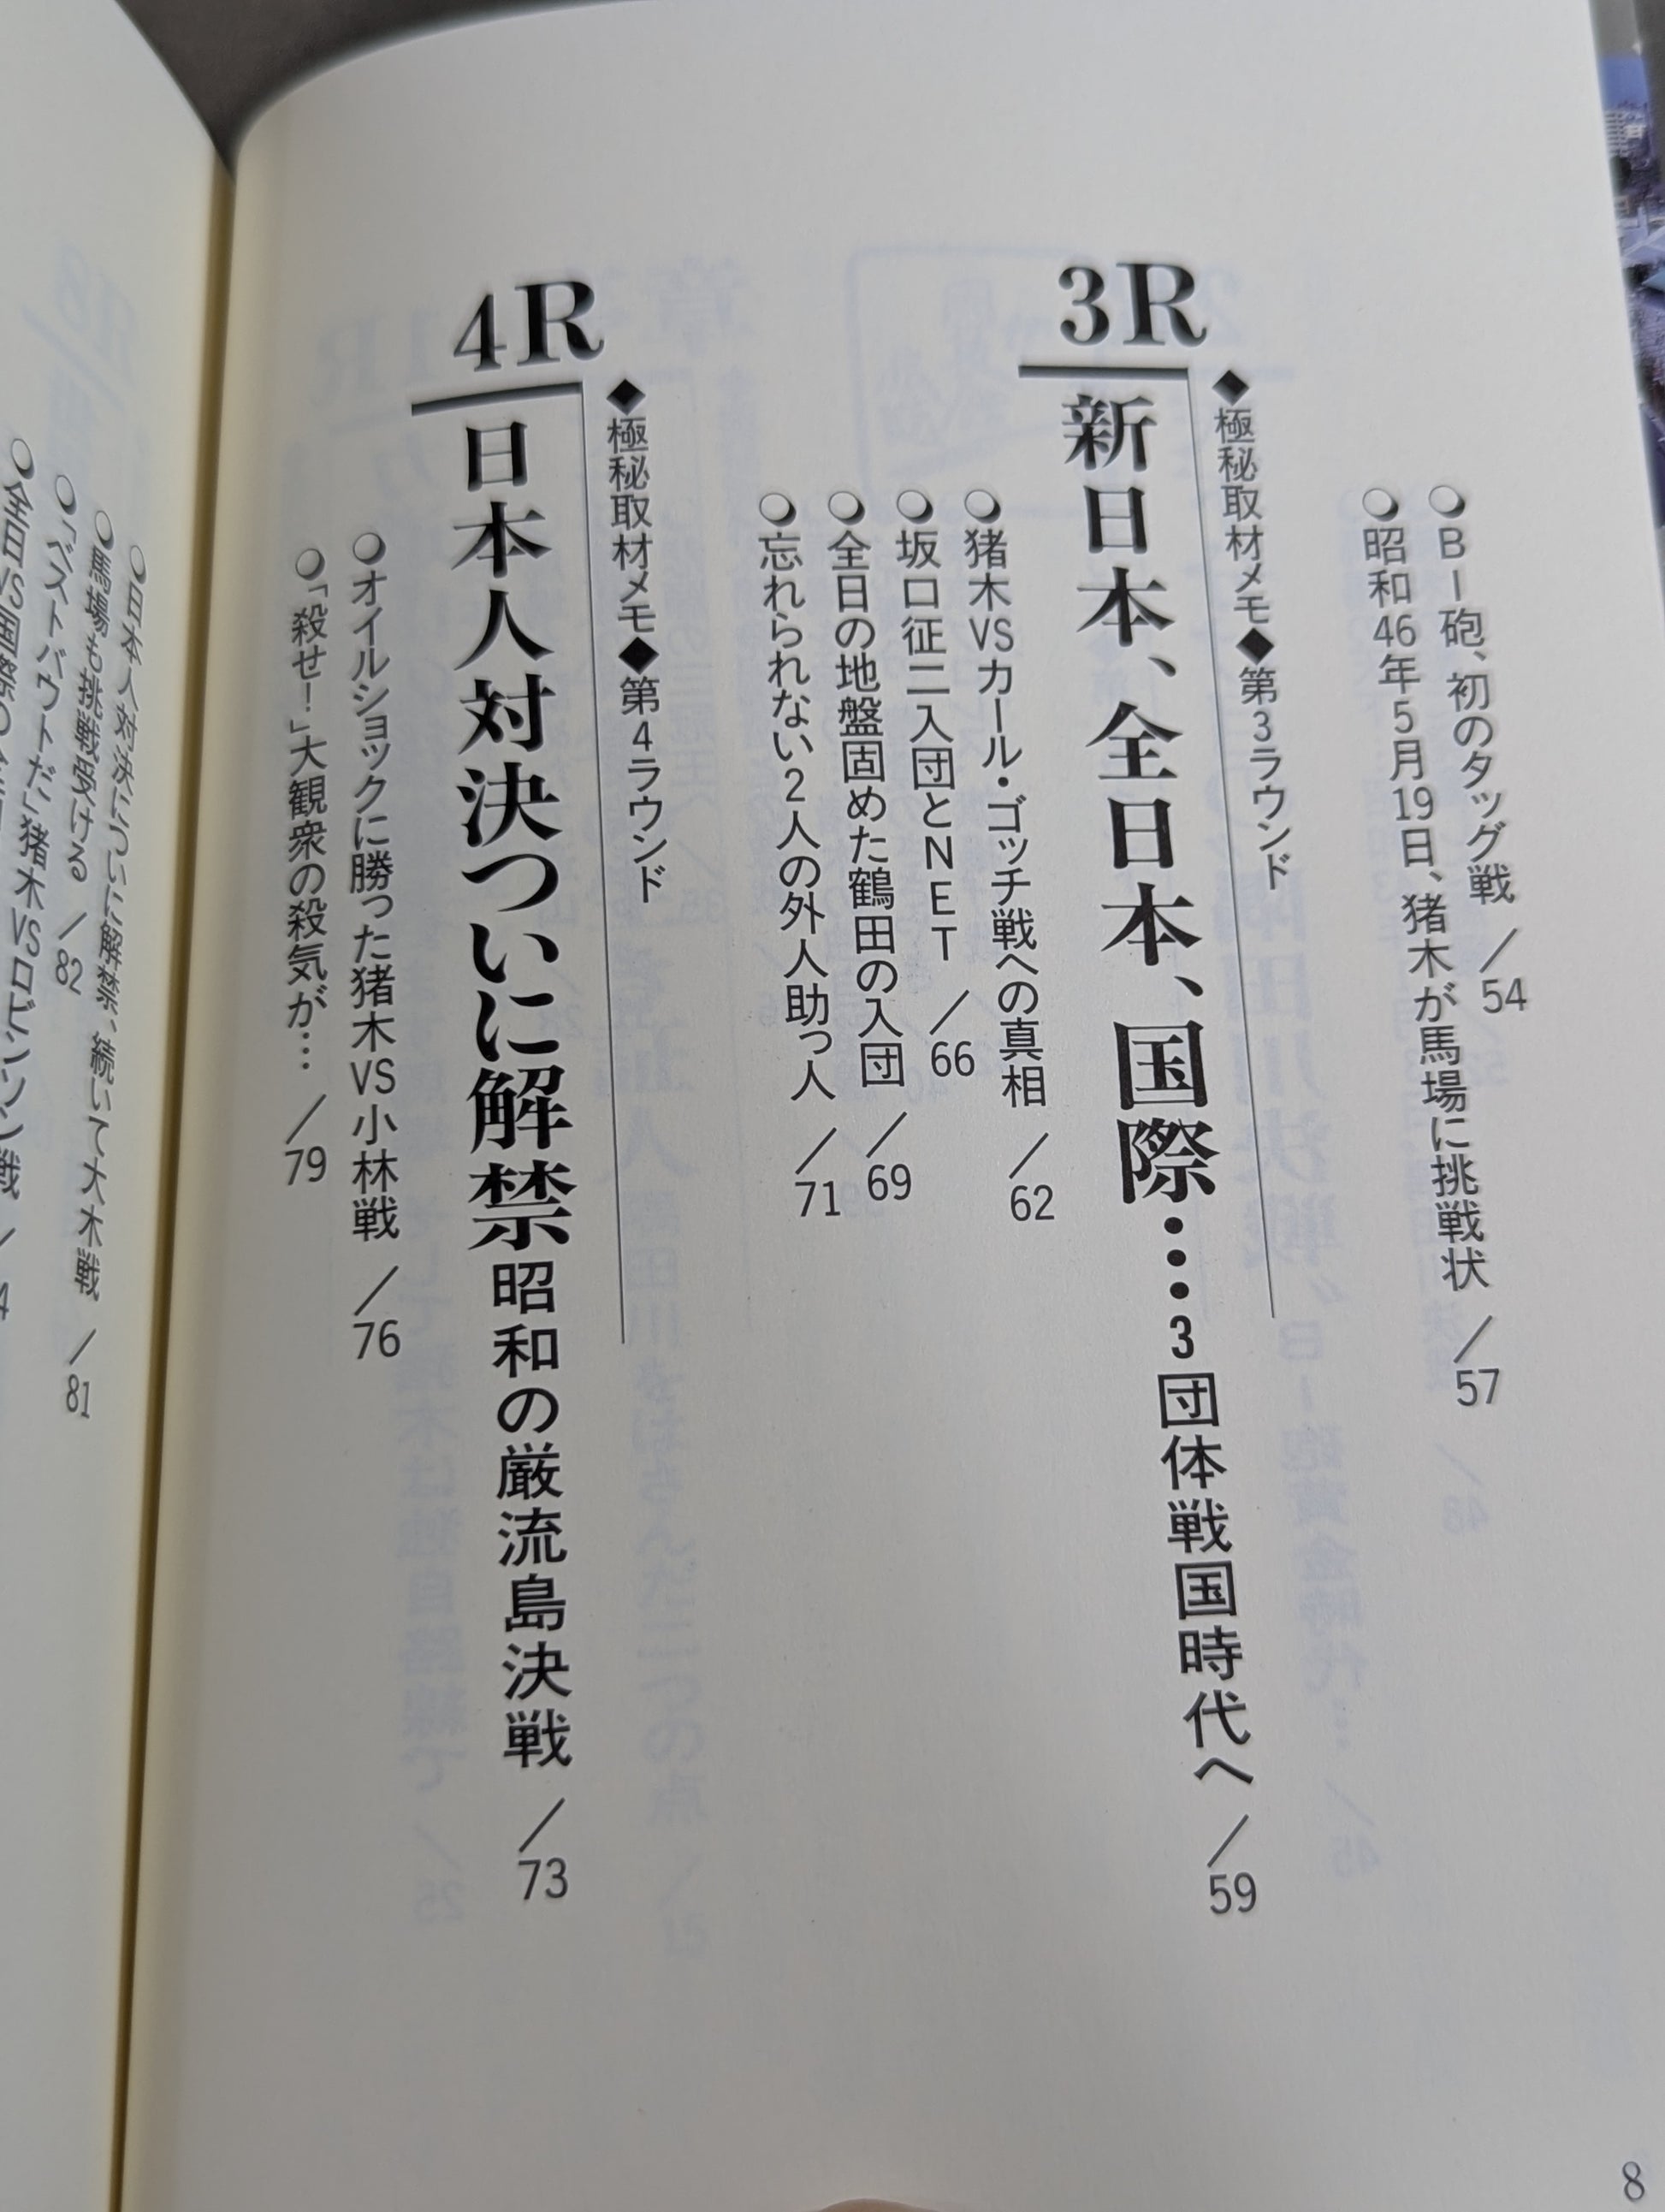 ○B－砲、初のタッグ戦 ／54
○昭和46年5月19日、猪木が馬場に挑戦状 ／57
◆極秘取材メモ◆第3ラウンド
3R
新日本、全日本、国際…3団体戦国時代へ ／59
○猪木VSカール・ゴッチ戦への真相 ／62
○坂口征二入団とNET ／66
○全日の地盤固めた鶴田の入団 ／69
○忘れられない2人の外人助っ人 ／71
◆極秘取材メモ◆第4ラウンド
4R
日本人対決ついに解禁昭和の厳流島決戦 ／73
○オイルショックに勝った猪木VS小林戦 ／76
○「殺せ!」大観衆の殺気が… ／79
8
○日本人対決についに解禁、続いて大木戦 ／81
○馬場も挑戦受ける ／82
○「ベストバウトだ」猪木VSロビンソン戦
○全日VS国際の